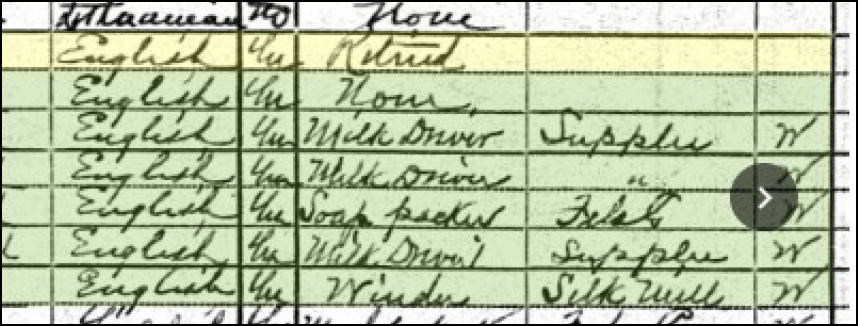 Lithuanian No None
English Yes Retired
English Yes None
English Yes Milk Driver Supplee W
English Yes Milk Driver " W
English Yes Soap packer Fels W
English Yes Milk Driver Supplee W
English Yes Winder Silk Mill W